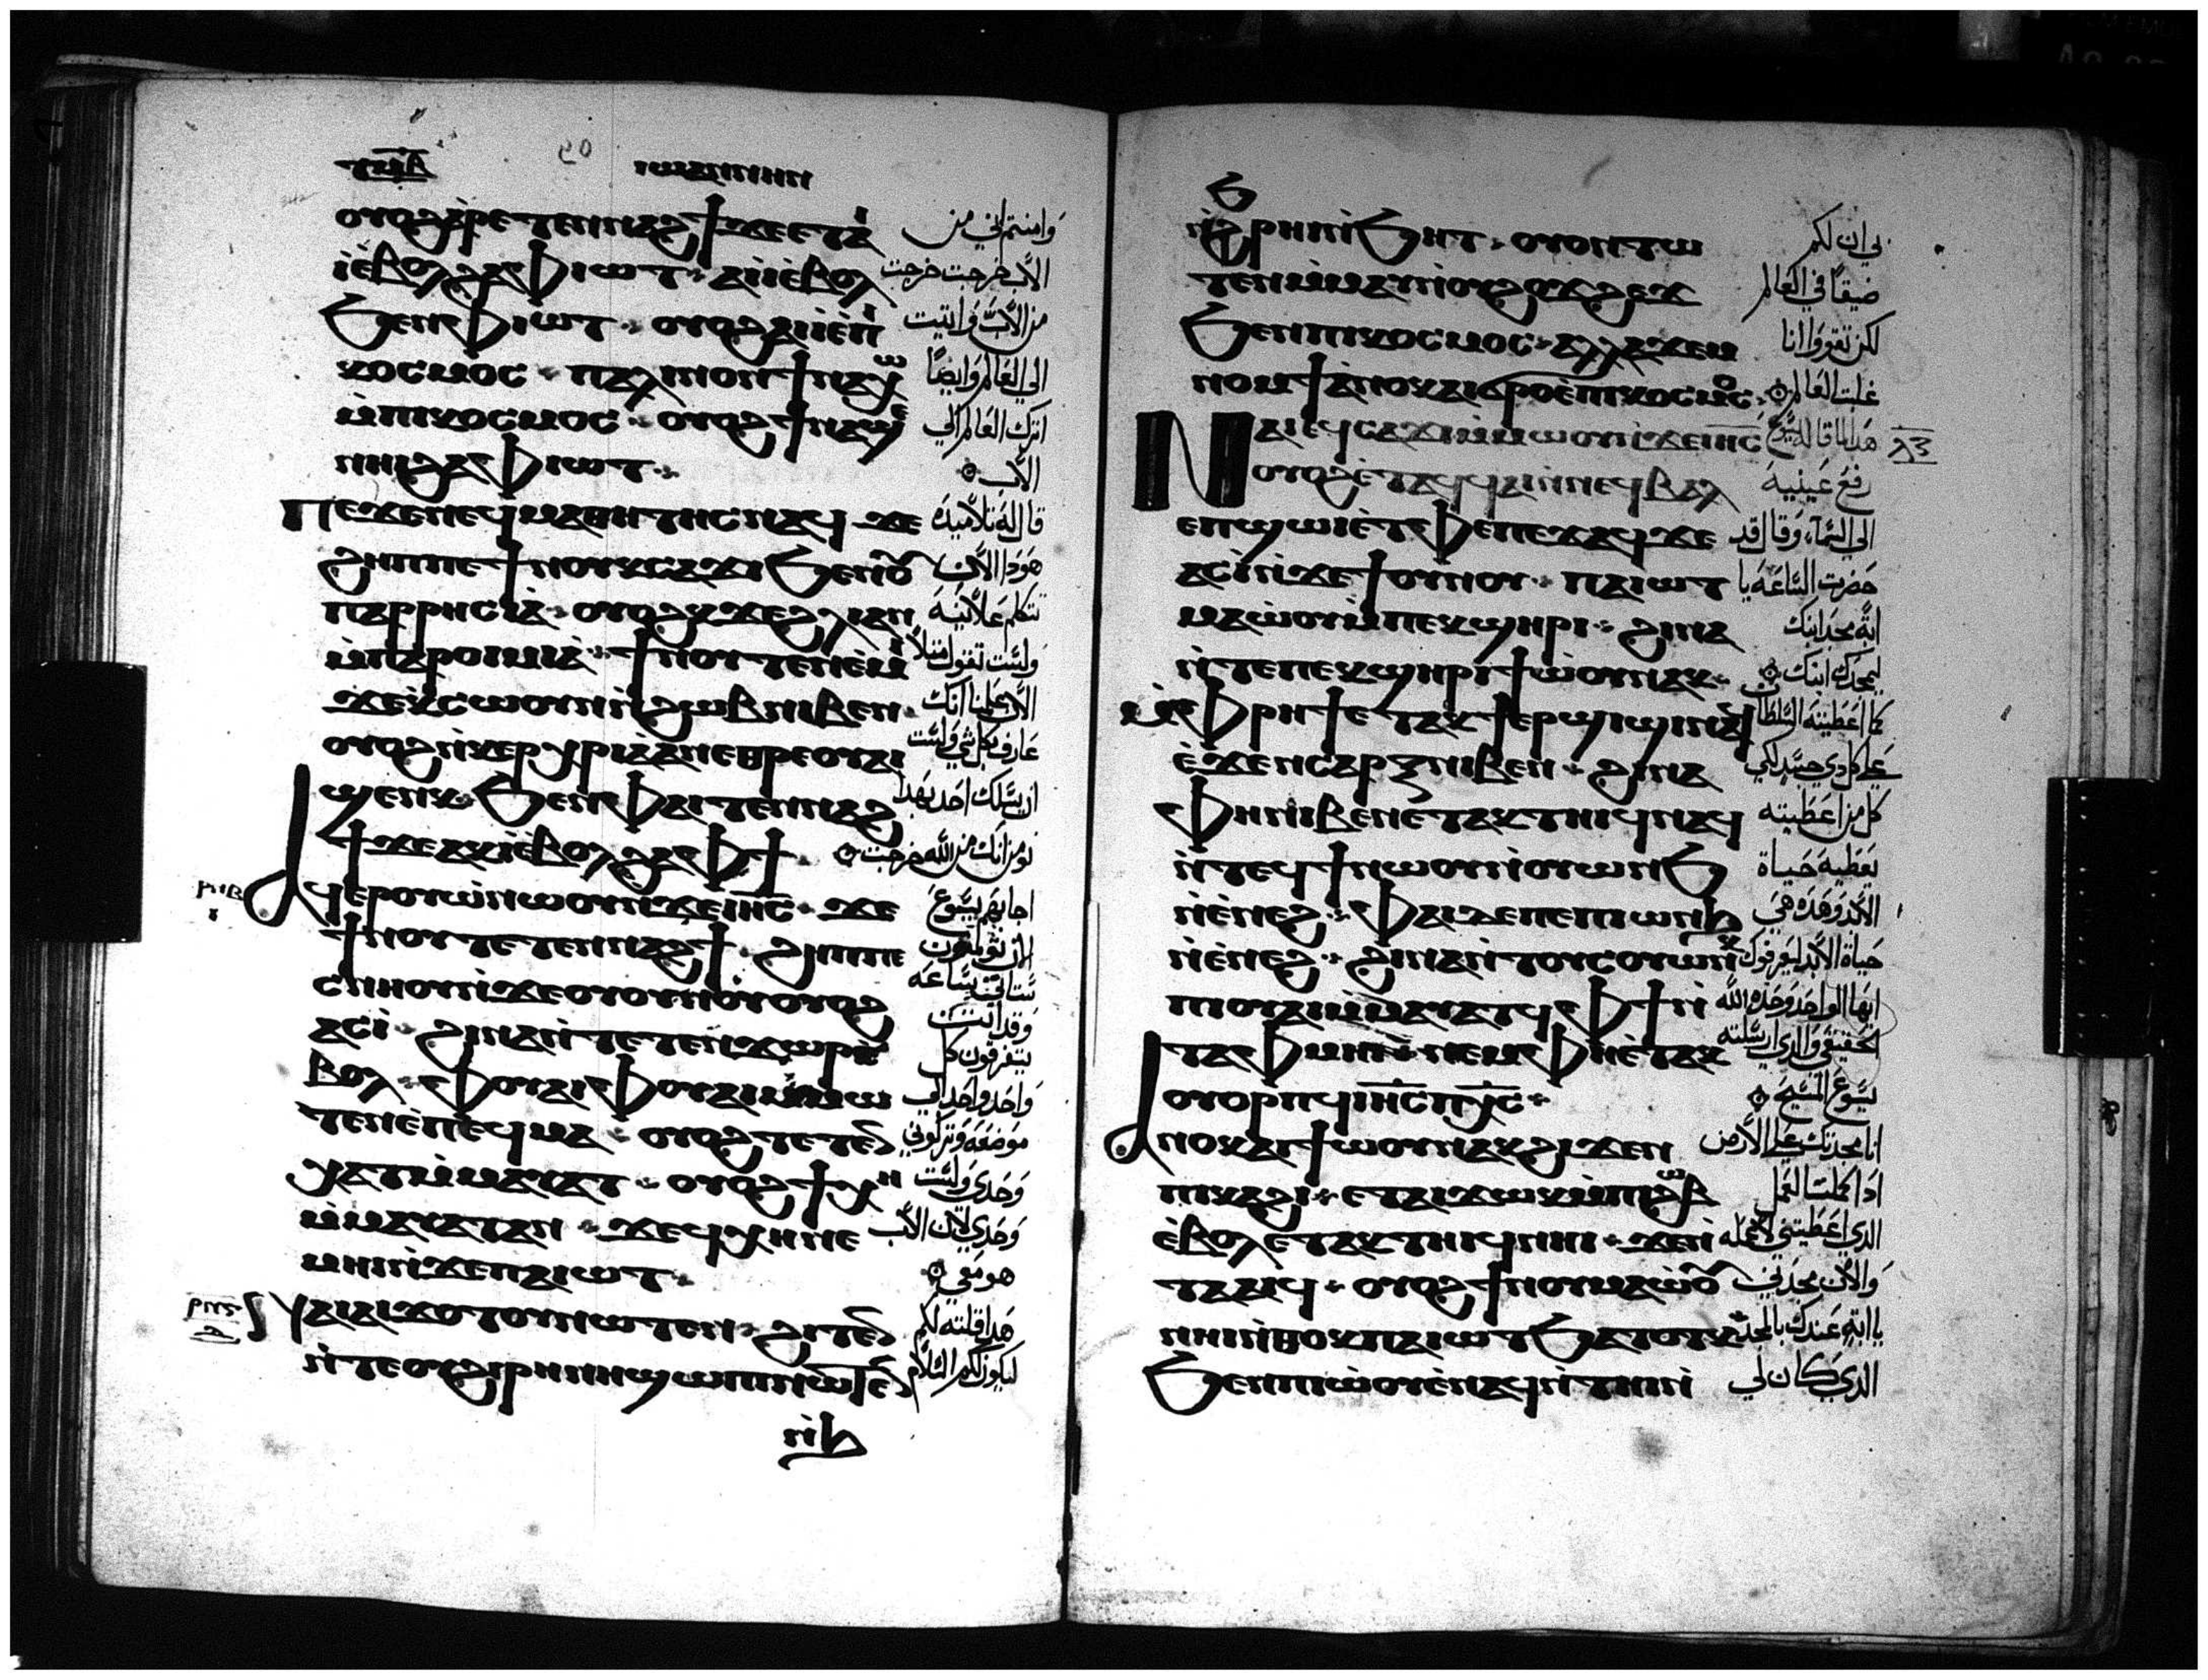 ⲧⲱⲃ
ⲓⲱⲁⲛⲛⲏⲛ
ⲟⲩⲟϩⲁⲣⲉⲧⲉⲛⲛⲁϩϯϫⲉⲉⲧⲁ
ⲓⲉⲃⲟⲗϩⲁⲫⲓⲱⲧ ⲁⲓⲓⲉⲃⲟⲗ
ϧⲉⲛⲫⲓⲱⲧ ⲟⲩⲟϩⲁⲓⲓⲉⲡⲓ
ⲕⲟⲥⲙⲟⲥ ⲡⲁⲗⲓⲛⲟⲛϯⲛⲁⲭⲱ
ⲙⲡⲓⲕⲟⲥⲙⲟⲥ ⲟⲩⲟϩϯⲛⲁϣⲉ
ⲛⲏⲓϩⲁⲫⲓⲱⲧ
ⲡⲉϫⲉⲛⲉϥⲙⲁⲑⲏⲧⲏⲥⲛⲁϥ ϫⲉ
ϩⲏⲡⲡⲉϯⲛⲟⲩⲕⲥⲁϫⲓϧⲉⲛⲟⲩ
ⲡⲁⲣⲣⲏⲥⲓⲁ ⲟⲩⲟϩⲕϫⲉϩⲗⲓⲁⲛ
ⲙⲡⲁⲣⲟⲓⲙⲓⲁ ϯⲛⲟⲩⲧⲉⲛⲉⲙⲓ
ϫⲉⲕⲥⲱⲟⲩⲛⲛϩⲱⲃⲛⲓⲃⲉⲛ
ⲟⲩⲟϩⲛⲕⲉⲣⲭⲣⲓⲁⲁⲛⲉⲑⲣⲉⲟⲩⲁⲓ
ϣⲉⲛⲕ ϧⲉⲛⲫⲁⲓⲧⲉⲛⲛⲁϩ
ϯϫⲉⲁⲕⲓⲉⲃⲟⲗϩⲁⲫϯ
ⲁϥⲉⲣⲟⲩⲱⲛⲱⲟⲩⲛϫⲉⲓⲏⲥ ϫⲉ
ϯⲛⲟⲩⲧⲉⲧⲉⲛⲛⲁϩϯ ϩⲏⲡⲡⲉ
ⲥⲛⲏⲟⲩⲛϫⲉⲟⲩⲟⲩⲛⲟⲩⲟⲩⲟϩ
ⲁⲥⲓ ϩⲓⲛⲁⲛⲧⲉⲧⲉⲛϫⲱⲣⲉ
ⲃⲟⲗ ⲫⲟⲩⲁⲓⲫⲟⲩⲁⲓⲙⲙⲱ
ⲧⲉⲛⲉⲡⲉϥⲙⲁ ⲟⲩⲟϩⲧⲉⲧⲉⲛ
ⲭⲁⲧⲙⲙⲁⲩⲁⲧ ⲟⲩⲟϩϯⲭⲏ
ⲙⲙⲁⲩⲁⲧⲁⲛ ϫⲉϥⲭⲏⲛⲉ
ⲙⲏⲓⲛϫⲉⲡⲁⲓⲱⲧ
ⲛⲁⲓⲁⲓϫⲟⲧⲟⲩⲛⲱⲧⲉⲛ ϩⲓⲧⲉⲛ
ⲛⲧⲉⲟⲩϩⲓⲣⲏⲛⲏϣⲱⲡⲓⲛⲱⲧⲉⲛ
ⲛϧ
وامنتم اني من
الاب خرجت خرجت
من الاب واتيت
الي العالم وايضا
اترك العالم الي
الاب
قال له تلاميذه
هوذا الان
تتكلم علانيه
ولست تقول مثلا
الان علمنا انك
عارف بكل شي ولست
ان يسلك احد بهذا
نومن انك من الله خرجت
اجابهم يسوع
الان تومنون
ستاتي ساعه
وقد اتت
يتفرقون كل
واحد واحد الي
موضعه وتتركوني
وحدي ولست
وحدي لان الاب
هو معي
هذا قلته لكم
ليكون لكم السلام
ⲛϩⲣⲏⲓⲛϧⲏⲧ ⲟⲩⲟⲛⲧⲱ
ⲧⲉⲛⲙⲙⲁⲩⲛⲟⲩϩⲟϫϩⲉϫ
ϧⲉⲛⲡⲓⲕⲟⲥⲙⲟⲥ ⲁⲗⲗⲁϫⲉⲙ
ⲛⲟⲙϯⲁⲛⲟⲕⲁⲓϭⲣⲟⲉⲡⲓⲕⲟⲥⲙⲟⲥ
ⲛⲁⲓⲉϥⲥⲁϫⲓⲙⲙⲱⲟⲩⲛϫⲉⲓⲏⲥ
ⲟⲩⲟϩⲉⲧⲁϥϥⲁⲓⲛⲛⲉϥⲃⲁⲗ
ⲉⲡϣⲱⲓⲉⲧⲫⲉⲡⲉϫⲁϥϫⲉ
ⲁⲥⲓⲛϫⲉϯⲟⲩⲛⲟⲩ ⲡⲁⲓⲱⲧ
ⲙⲁⲱⲟⲩⲙⲡⲉⲕϣⲏⲣⲓ ϩⲓⲛⲁ
ⲛⲧⲉⲡⲉⲕϣⲏⲣⲓϯⲱⲟⲩⲛⲁⲕ
ⲙⲫⲣⲏϯⲉⲧⲁⲕϯⲉⲣϣⲓϣⲓⲛⲁϥ
ⲉϫⲉⲛⲥⲁⲣⲝⲛⲓⲃⲉⲛ ϩⲓⲛⲁ
ⲫⲏⲛⲓⲃⲉⲛⲉⲧⲁⲕⲧⲏⲓϥⲛⲁϥ
ⲛⲧⲉϥϯⲛⲱⲟⲩⲛⲟⲩⲱⲛϧ
ⲛⲉⲛⲉϩ ⲫⲁⲓⲇⲉⲡⲉⲡⲓⲱⲛϧ
ⲛⲉⲛⲉϩ ϩⲓⲛⲁⲛⲧⲟⲩⲥⲟⲩⲱⲛⲕ
ⲡⲓⲟⲩⲁⲓⲙⲙⲁⲩⲁⲧϥⲫϯⲛ
ⲧⲁⲫⲙⲏⲓ ⲛⲉⲙⲫⲏⲉⲧⲁⲕ
ⲟⲩⲟⲣⲡϥⲓⲏⲥⲡⲭⲥ
ⲁⲛⲟⲕⲁⲓϯⲱⲟⲩⲛⲁⲕϩⲓϫⲉⲛ
ⲡⲓⲕⲁϩⲓ ⲉⲧⲁⲓϫⲱⲕⲙⲡⲓϩⲱⲃ
ⲉⲃⲟⲗⲉⲧⲁⲕⲧⲏⲓϥⲛⲏⲓ ϫⲉⲛ
ⲧⲁⲁⲓϥ ⲟⲩⲟϩϯⲛⲟⲩⲙⲁⲱⲟⲩ
ⲛⲏⲓⲛⲑⲟⲕⲡⲁⲓⲱⲧϧⲁⲧⲟⲧⲕ
ϧⲉⲛⲡⲓⲱⲟⲩⲉⲛⲁϥⲛⲧⲏⲓ
بي ان لكم
ضيقا في العالم
لكن تقووا انا
غلبت العالم
هذا لما قاله يسوع
رفع عينيه
الي السماء وقال قد
حضرت الساعه يا
ابة مجد ابنك
ليمجدك ابنك
كما اعطيته السلطان
علي كل ذي جسد لكي
كل من اعطيته
يعطيه حياة
الابد وهذه هي
حياة الابد ليعرفوك
ايها الواحد وحده الله
الحقيقي والذي ارسلته
يسوع المسيح
انا مجدتك علي الارض
اذ اكملت العمل
الذي اعطيتني لاعمله
والان مجدني
يا ابة عندك بالمجد
الذي كان لي